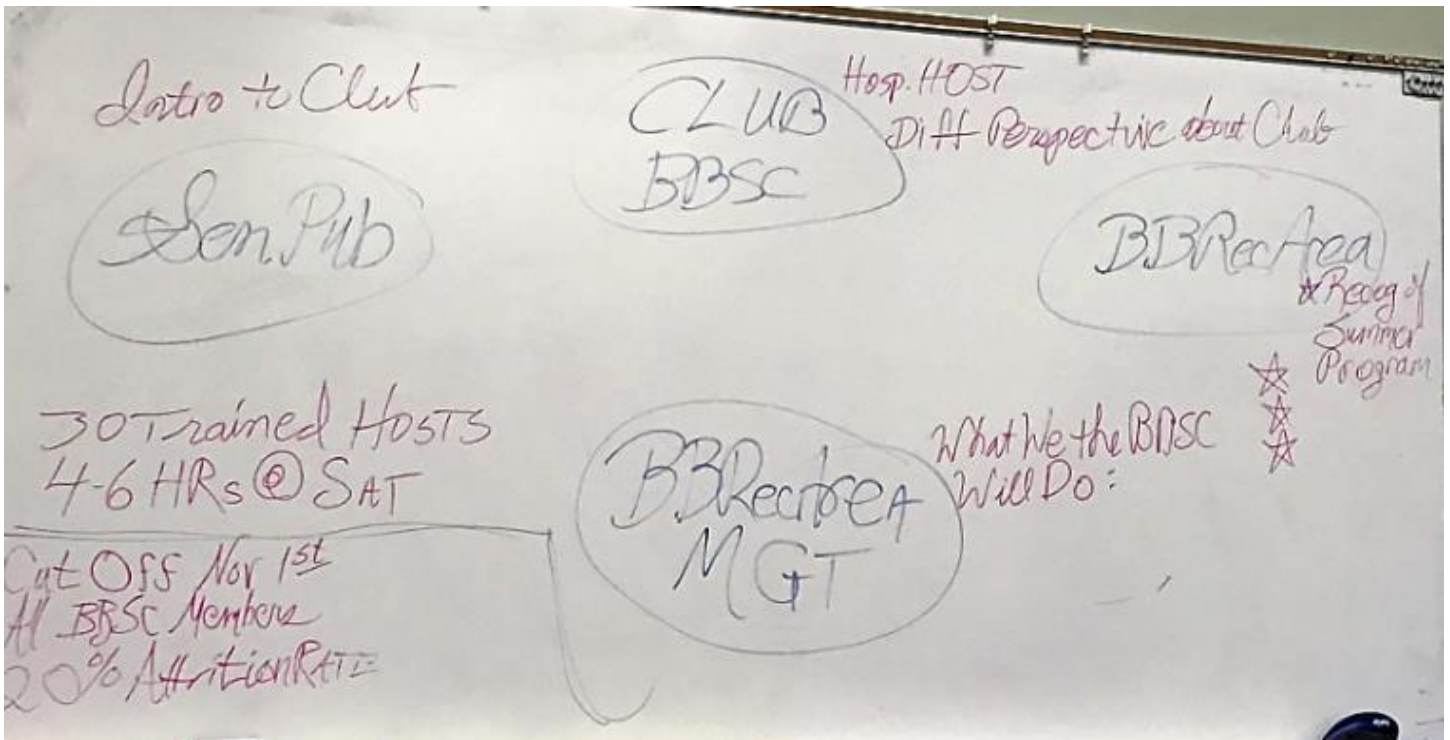 Intro to Club
CLUB
BBSC
Hosp. HOST
Diff Perspective about Club
Pub
BBRecArea
☆ Recog of
Summer
Program
30 Trained HOSTS
4-6 HRs @ SAT
BBRecArea
MGT
What We the BBSC
Will Do:
Cut Off Nov 1st
All BBSC Members
20% Attrition RATE